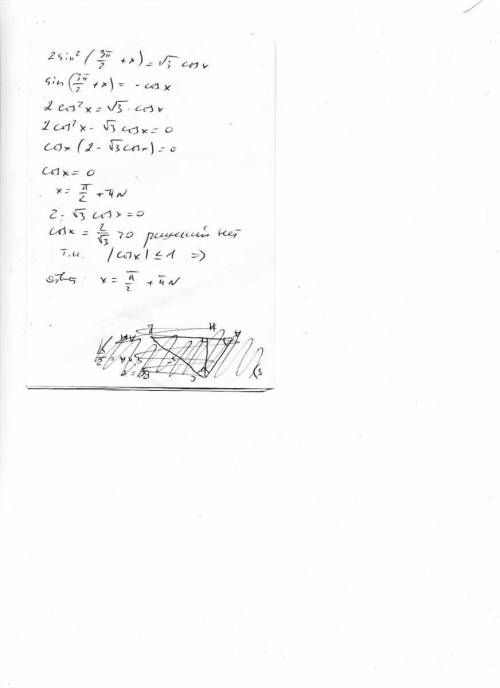 2 sin² (3π/2 + x) = √3 cos x
sin(3π/2 + x) = - cos x
2 cos² x = √3 · cos x
2 cos² x - √3 cos x = 0
cos x (2 - √3 cos x) = 0
cos x = 0
x = π/2 + πN
2 - √3 cos x = 0
cos x = 2/√3 >0 решений нет
т.к. |cos x| ≤ 1 =>
ответ x = π/2 + πN